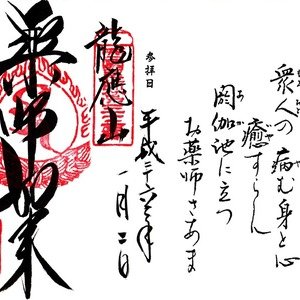 衆人の
病む身と心
癒すらん
閼伽池に立つ
お薬師さあま
参拝日
平成二六年
一月二日
龍應山
薬師如来